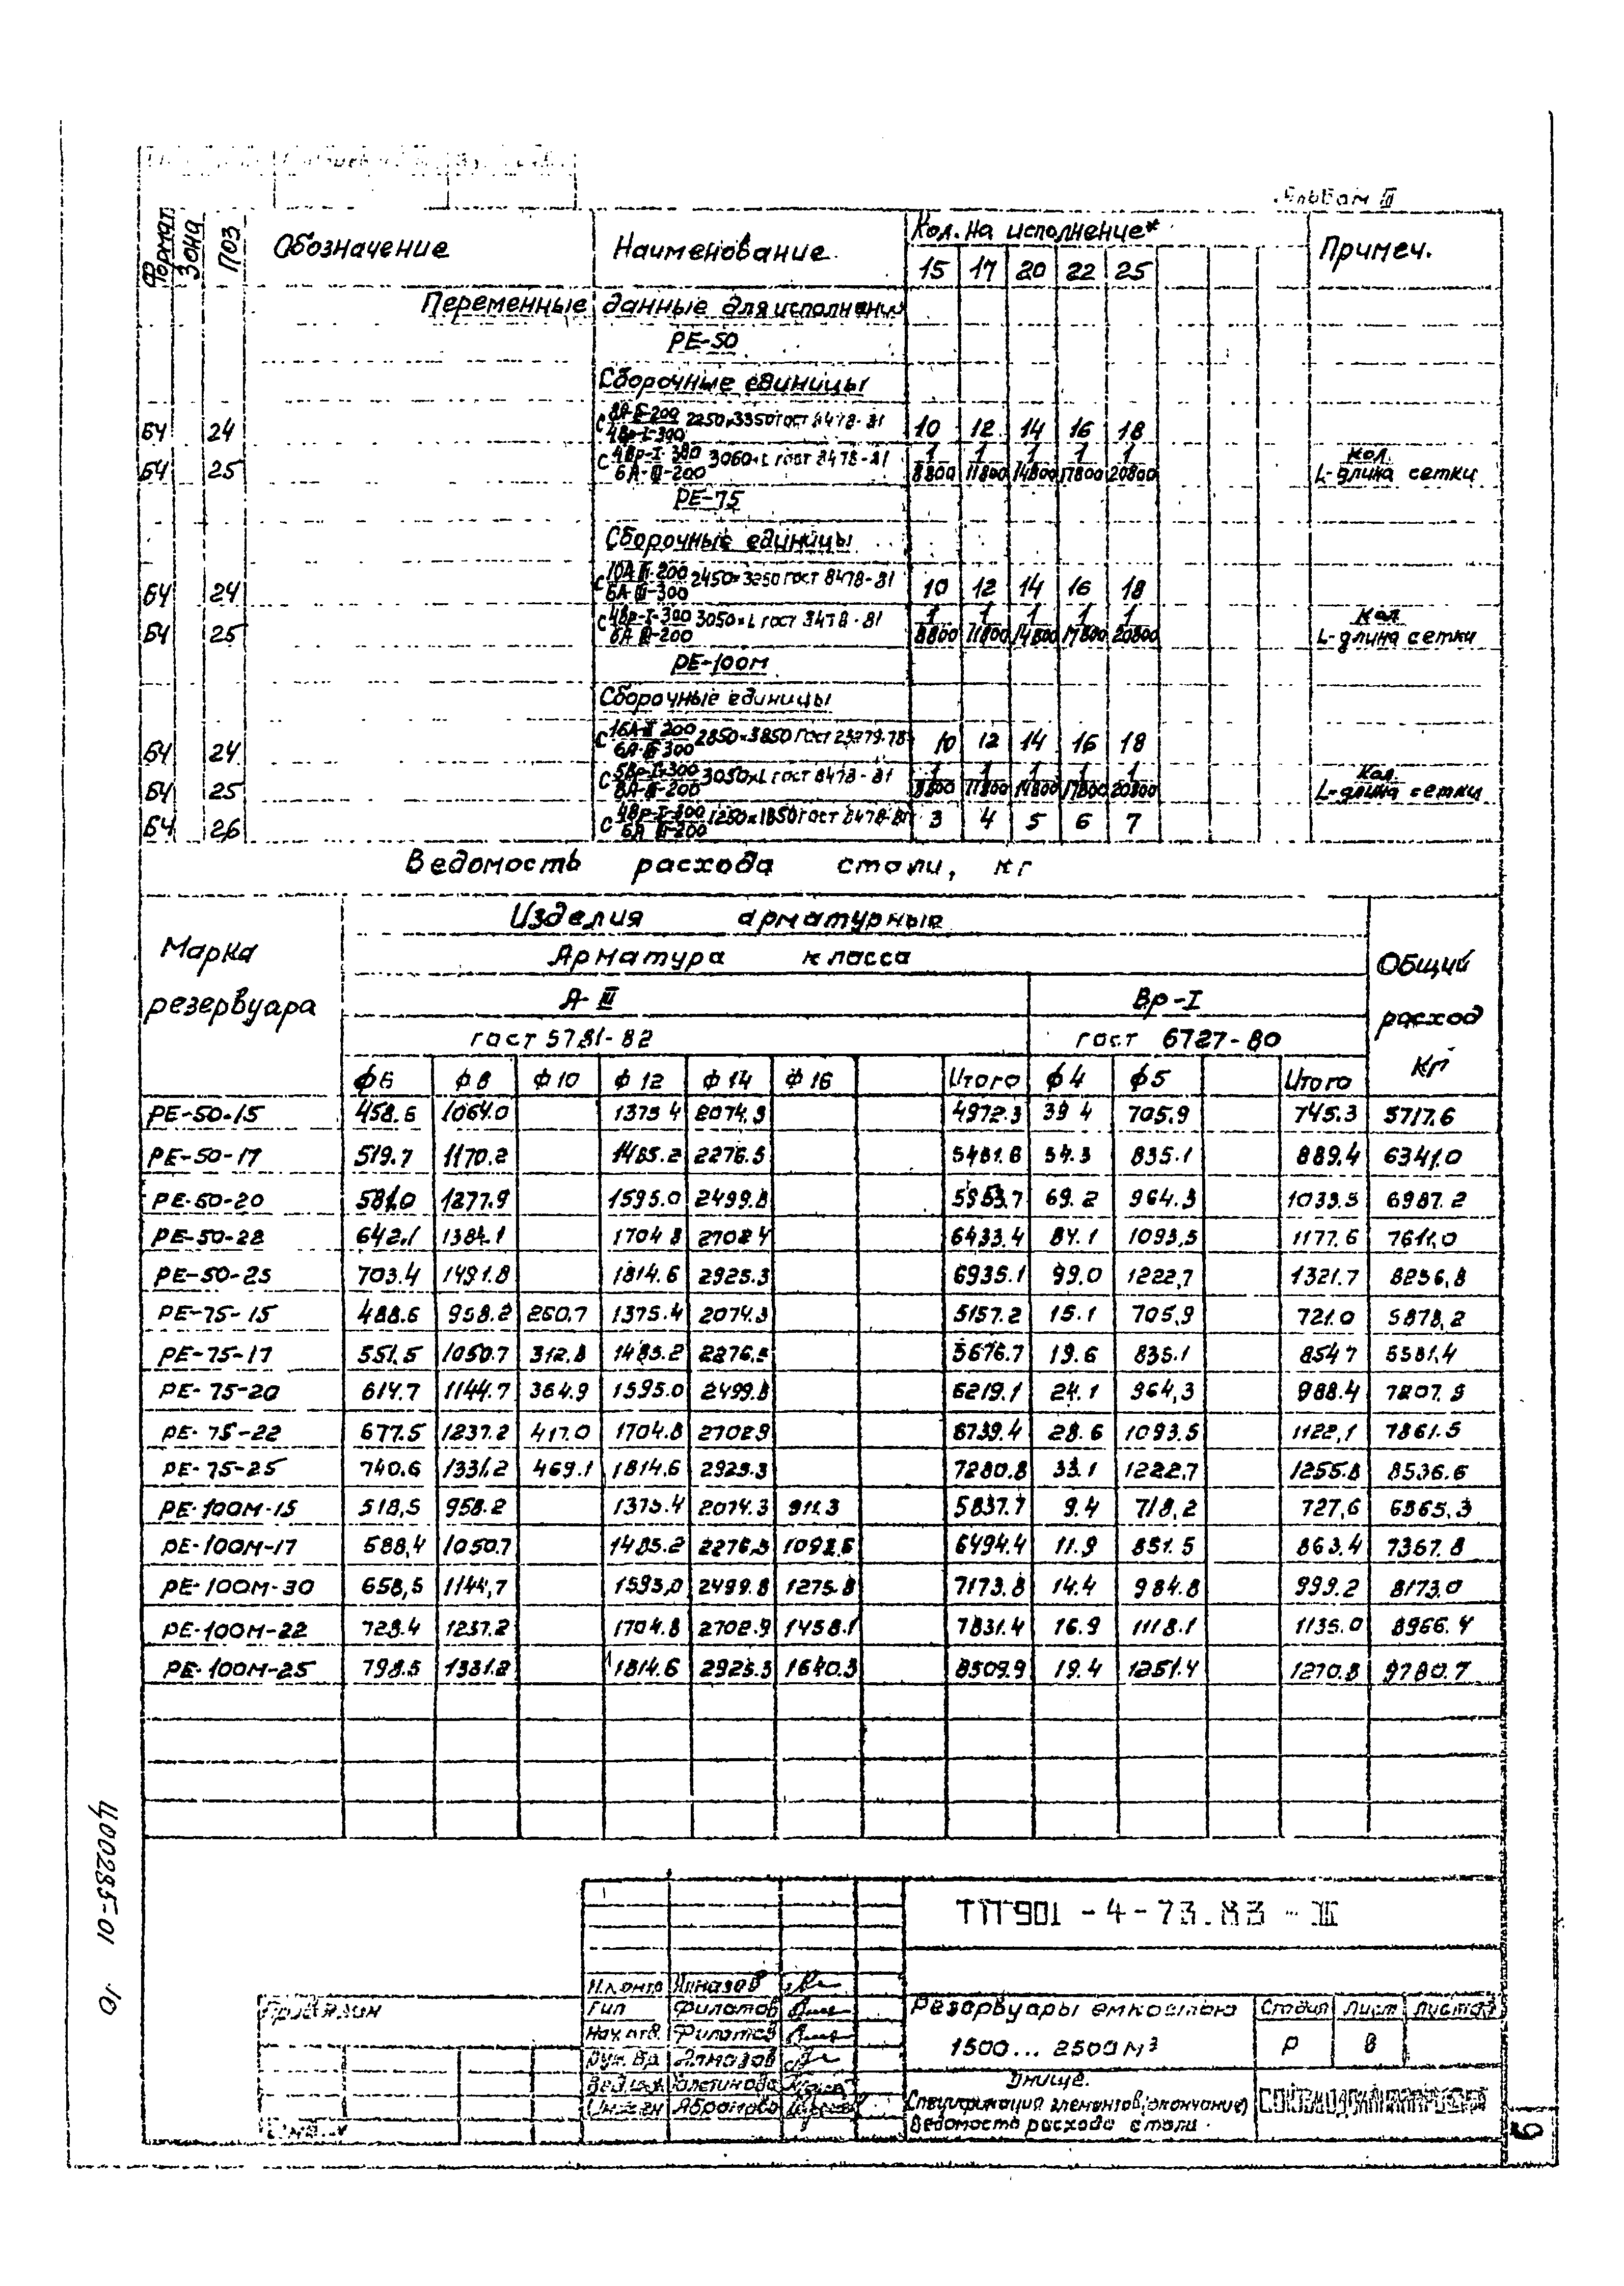 Альбом III
Формат Зона Поз Обозначение Наименование Кол. на исполнение* Примеч.
15 17 20 22 25
Переменные данные для исполнений
РЕ-50
Сборочные единицы
БЧ 24 2250×3350 ГОСТ 8478-81 10 12 14 16 18
БЧ 25 С 4Вр-I-300/6А-III-200 3060×L ГОСТ 8478-81 1/8800 1/11800 1/14800 1/17800 1/20800 кол. L-длина сетки
РЕ-75
Сборочные единицы
БЧ 24 С 10АIII-200/6А-III-300 2450×3250 ГОСТ 8478-81 10 12 14 16 18
БЧ 25 С 4Вр-I-300/6АIII-200 3050×L ГОСТ 8478-81 1/8800 1/11800 1/14800 1/17800 1/20800 Кол L-длина сетки
РЕ-100М
Сборочные единицы
БЧ 24 С 16А-III 200/6А-III-300 2850×3850 ГОСТ 23279-78 10 12 14 16 18
БЧ 25 С 5Вр-I-300/8А-III-200 3050×L ГОСТ 8478-81 1/8800 1/11800 1/14800 1/17800 1/20800 Кол. L-длина сетки
БЧ 26 1250×1850 ГОСТ 8478-81 3 4 5 6 7
Ведомость расхода стали, кг
Марка резервуара Изделия арматурные Общий расход кг
Арматура класса
А-III Вр-I
ГОСТ 5781-82 ГОСТ 6727-80
ф6 ф8 ф10 ф12 ф14 ф16 Итого ф4 ф5 Итого
РЕ-50-15 458.6 1064.0 1375 4 2074,3 4972.3 39 4 705,9 745.3 5717.6
РЕ-50-17 519.7 1170.2 1485.2 2276.5 5451.6 54.3 835.1 889.4 6341.0
РЕ-50-20 581.0 1277.9 1595.0 2499.8 5953.7 69.2 964.3 1033.5 6987.2
РЕ-50-22 642.1 1384.1 1704 8 2702 4 6433.4 84.1 1093,5 1177.6 7611,0
РЕ-50-25 703.4 1491.8 1814.6 2925.3 6935.1 99.0 1222,7 1321.7 8256,8
РЕ-75-15 488.6 958.2 260,7 1375.4 2074.3 5157.2 15.1 705,9 721.0 5878,2
РЕ-75-17 551,5 1050.7 312.8 1485.2 2276,5 5676.7 19.6 835.1 854 7 6531,4
РЕ-75-20 614.7 1144.7 364.9 1595.0 2499.8 6219.1 24.1 964,3 988.4 7207.5
РЕ-75-22 677.5 1237.2 417.0 1704.8 2702.9 6739.4 28.6 1093.5 1122,1 7861.5
РЕ-75-25 740.6 1331.2 469.1 1814.6 2925.3 7280.8 33.1 1222.7 1255.8 8536.6
РЕ-100М-15 518,5 958.2 1375.4 2074.3 911.3 5837.7 9.4 718,2 727,6 6565,3
РЕ-100М-17 588,4 1050.7 1485.2 2276,5 1093.6 6494.4 11.9 851.5 863.4 7357.8
РЕ-100М-30 658,5 1144,7 1595,0 2499.8 1275.8 7173.8 14.4 984.8 999.2 8173.0
РЕ-100М-22 728.4 1237.2 1704.8 2702.9 1458.1 7831.4 16.9 1118.1 1135.0 8966.4
РЕ-100М-25 798.5 1331.2 1814.6 2925.3 1640.3 8509.9 19.4 1251.4 1270.8 9780.7
ТП 901-4-73.83-III
Н.контр Алмазов
Гип Филатов
Нач.отд. Филатов
Рук. Бр Алмазов
Абрамова
Привязан
Резервуары емкостью 1500...2500 м³
Стадия Лист Листов
Р 8
Днище.
Спецификация элементов (окончание)
Ведомость расхода стали.
Ц00285-01 10
9